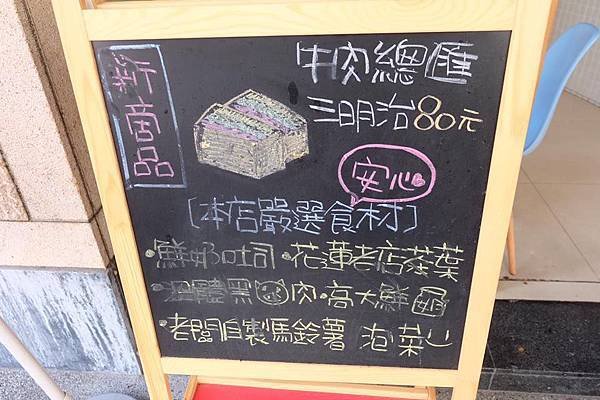 新商品
牛肉總匯
三明治80元
安心
〔本店嚴選食材〕
·鮮奶吐司·花蓮老店茶葉
黑 肉·高大鮮
·老闆自製馬鈴薯 泡菜